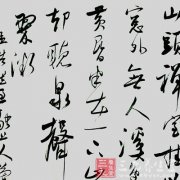 山頭禪室挂
窗外無人溪
黄昏半在下山
却聽泉聲
翠微
融上人